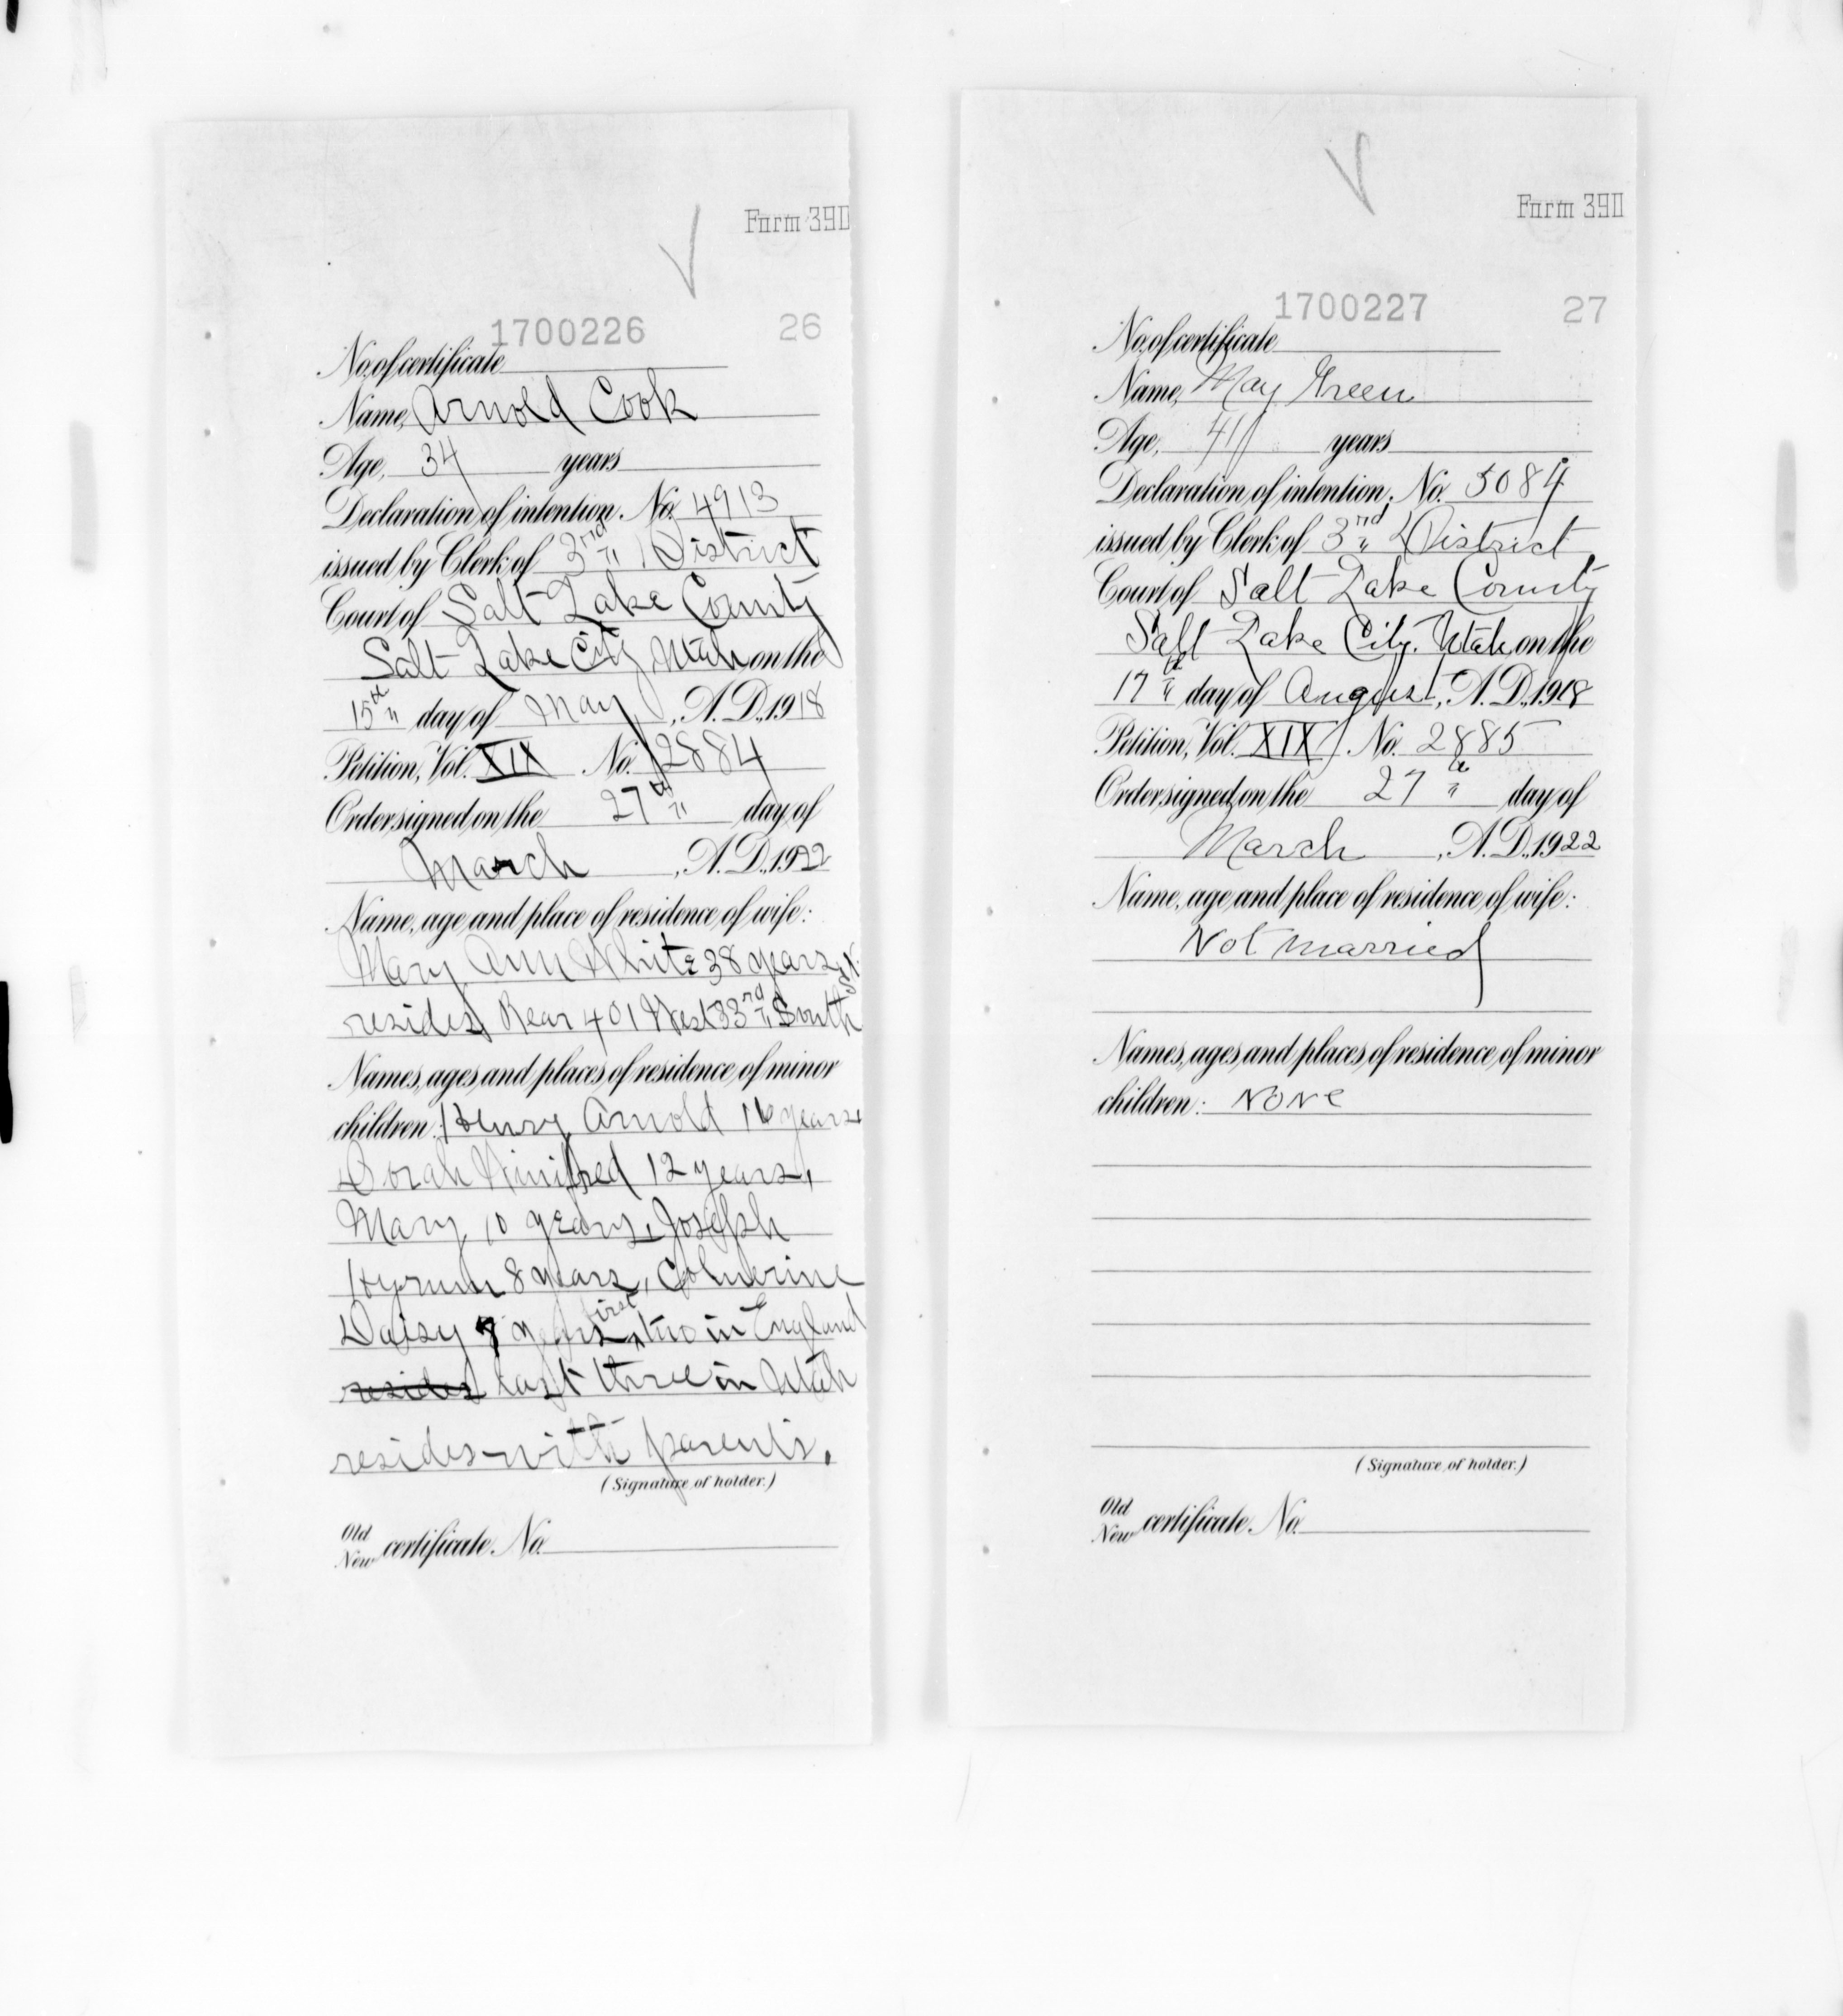 Form 39D
1700226 26
No. of certificate
Name, Arnold Cook
Age, 34 years
Declaration of intention, No. 4913
issued by Clerk of 3rd District
Court of Salt Lake County
Salt Lake City Utah on the
15th day of May, A.D., 1918
Petition, Vol. XIX No. 2884
Order signed on the 27th day of
March, A.D., 1922
Name, age and place of residence of wife:
Mary Ann White 38 years,
resides Rear 401 West 33rd South St.
Names, ages and places of residence of minor
children: Henry Arnold years
Dorah Winifred 12 years,
Mary 10 years, Joseph
Hyrum 8 years,
Daisy 7 years first two in England
resides last three in Utah
resides with parents.
(Signature of holder.)
Old
New certificate No.
Form 39D
1700227 27
No. of certificate
Name, May Green
Age, 41 years
Declaration of intention, No. 5084
issued by Clerk of 3rd District
Court of Salt Lake County
Salt Lake City. Utah, on the
17th day of August, A.D., 1918
Petition, Vol. XIX No. 2885
Order signed on the 27th day of
March, A.D., 1922
Name, age and place of residence of wife:
Not married
Names, ages and places of residence of minor
children: None
(Signature of holder.)
Old
New certificate No.